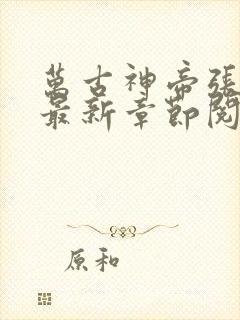 萬古神帝張
最新章節閱
原和